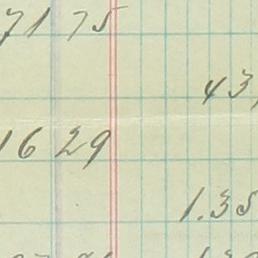 71 75
43,
16 29
1.35